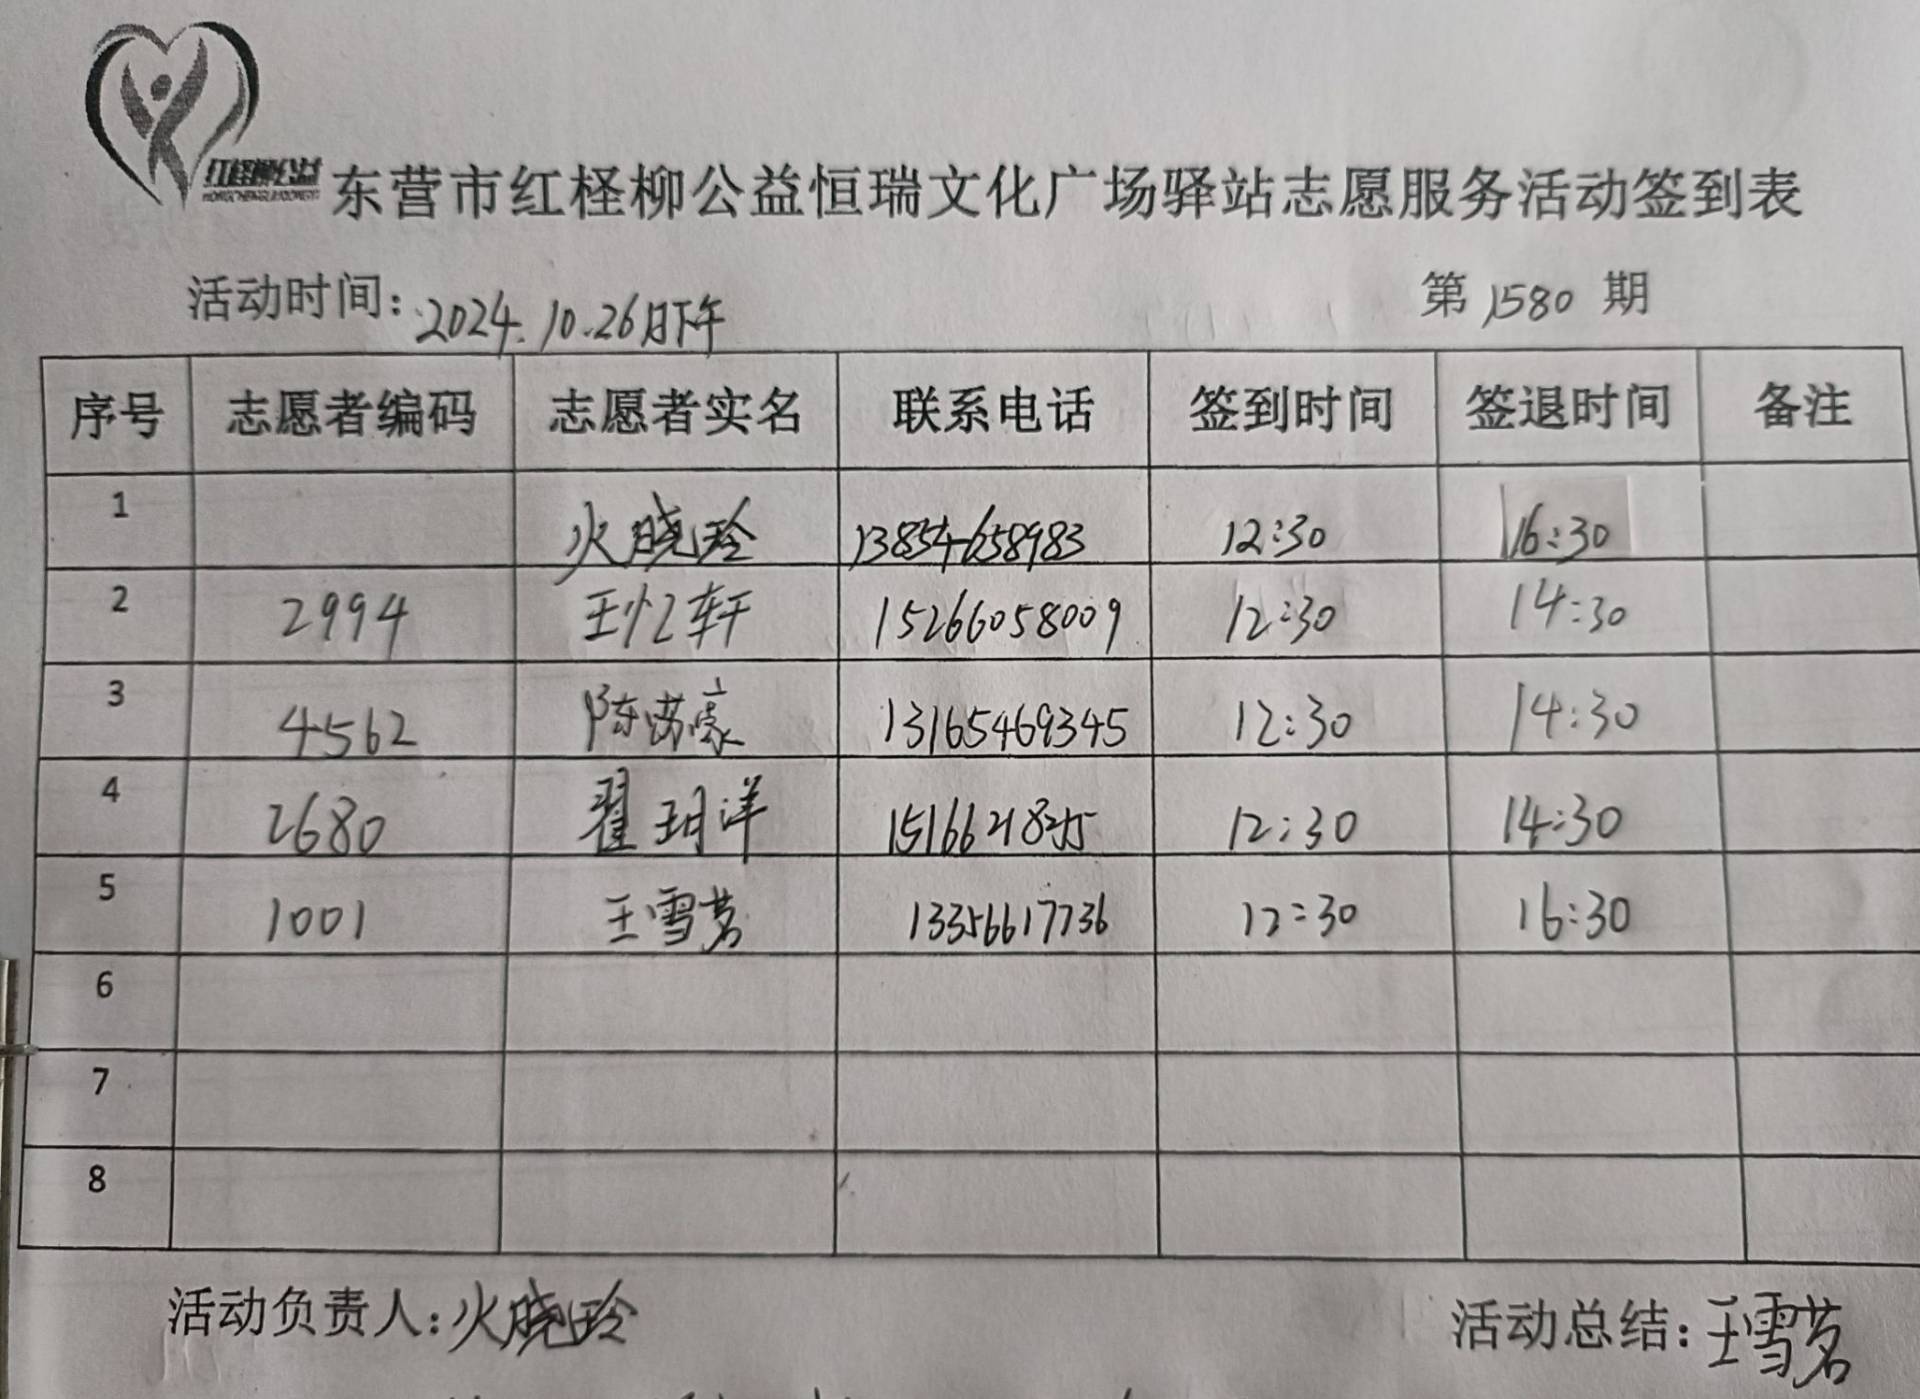 红柽柳公益
东营市红柽柳公益恒瑞文化广场驿站志愿服务活动签到表
活动时间：2024.10.26日下午 第1580期
序号 志愿者编码 志愿者实名 联系电话 签到时间 签退时间 备注
1 火晓玲 13854658983 12:30 16:30
2 2994 王忆轩 15266058009 12:30 14:30
3 4562 陈诺豪 13165469345 12:30 14:30
4 2680 翟玥洋 12:30 14:30
5 1001 王雪茗 13356617736 12:30 16:30
6
7
8
活动负责人：火晓玲 活动总结：王雪茗